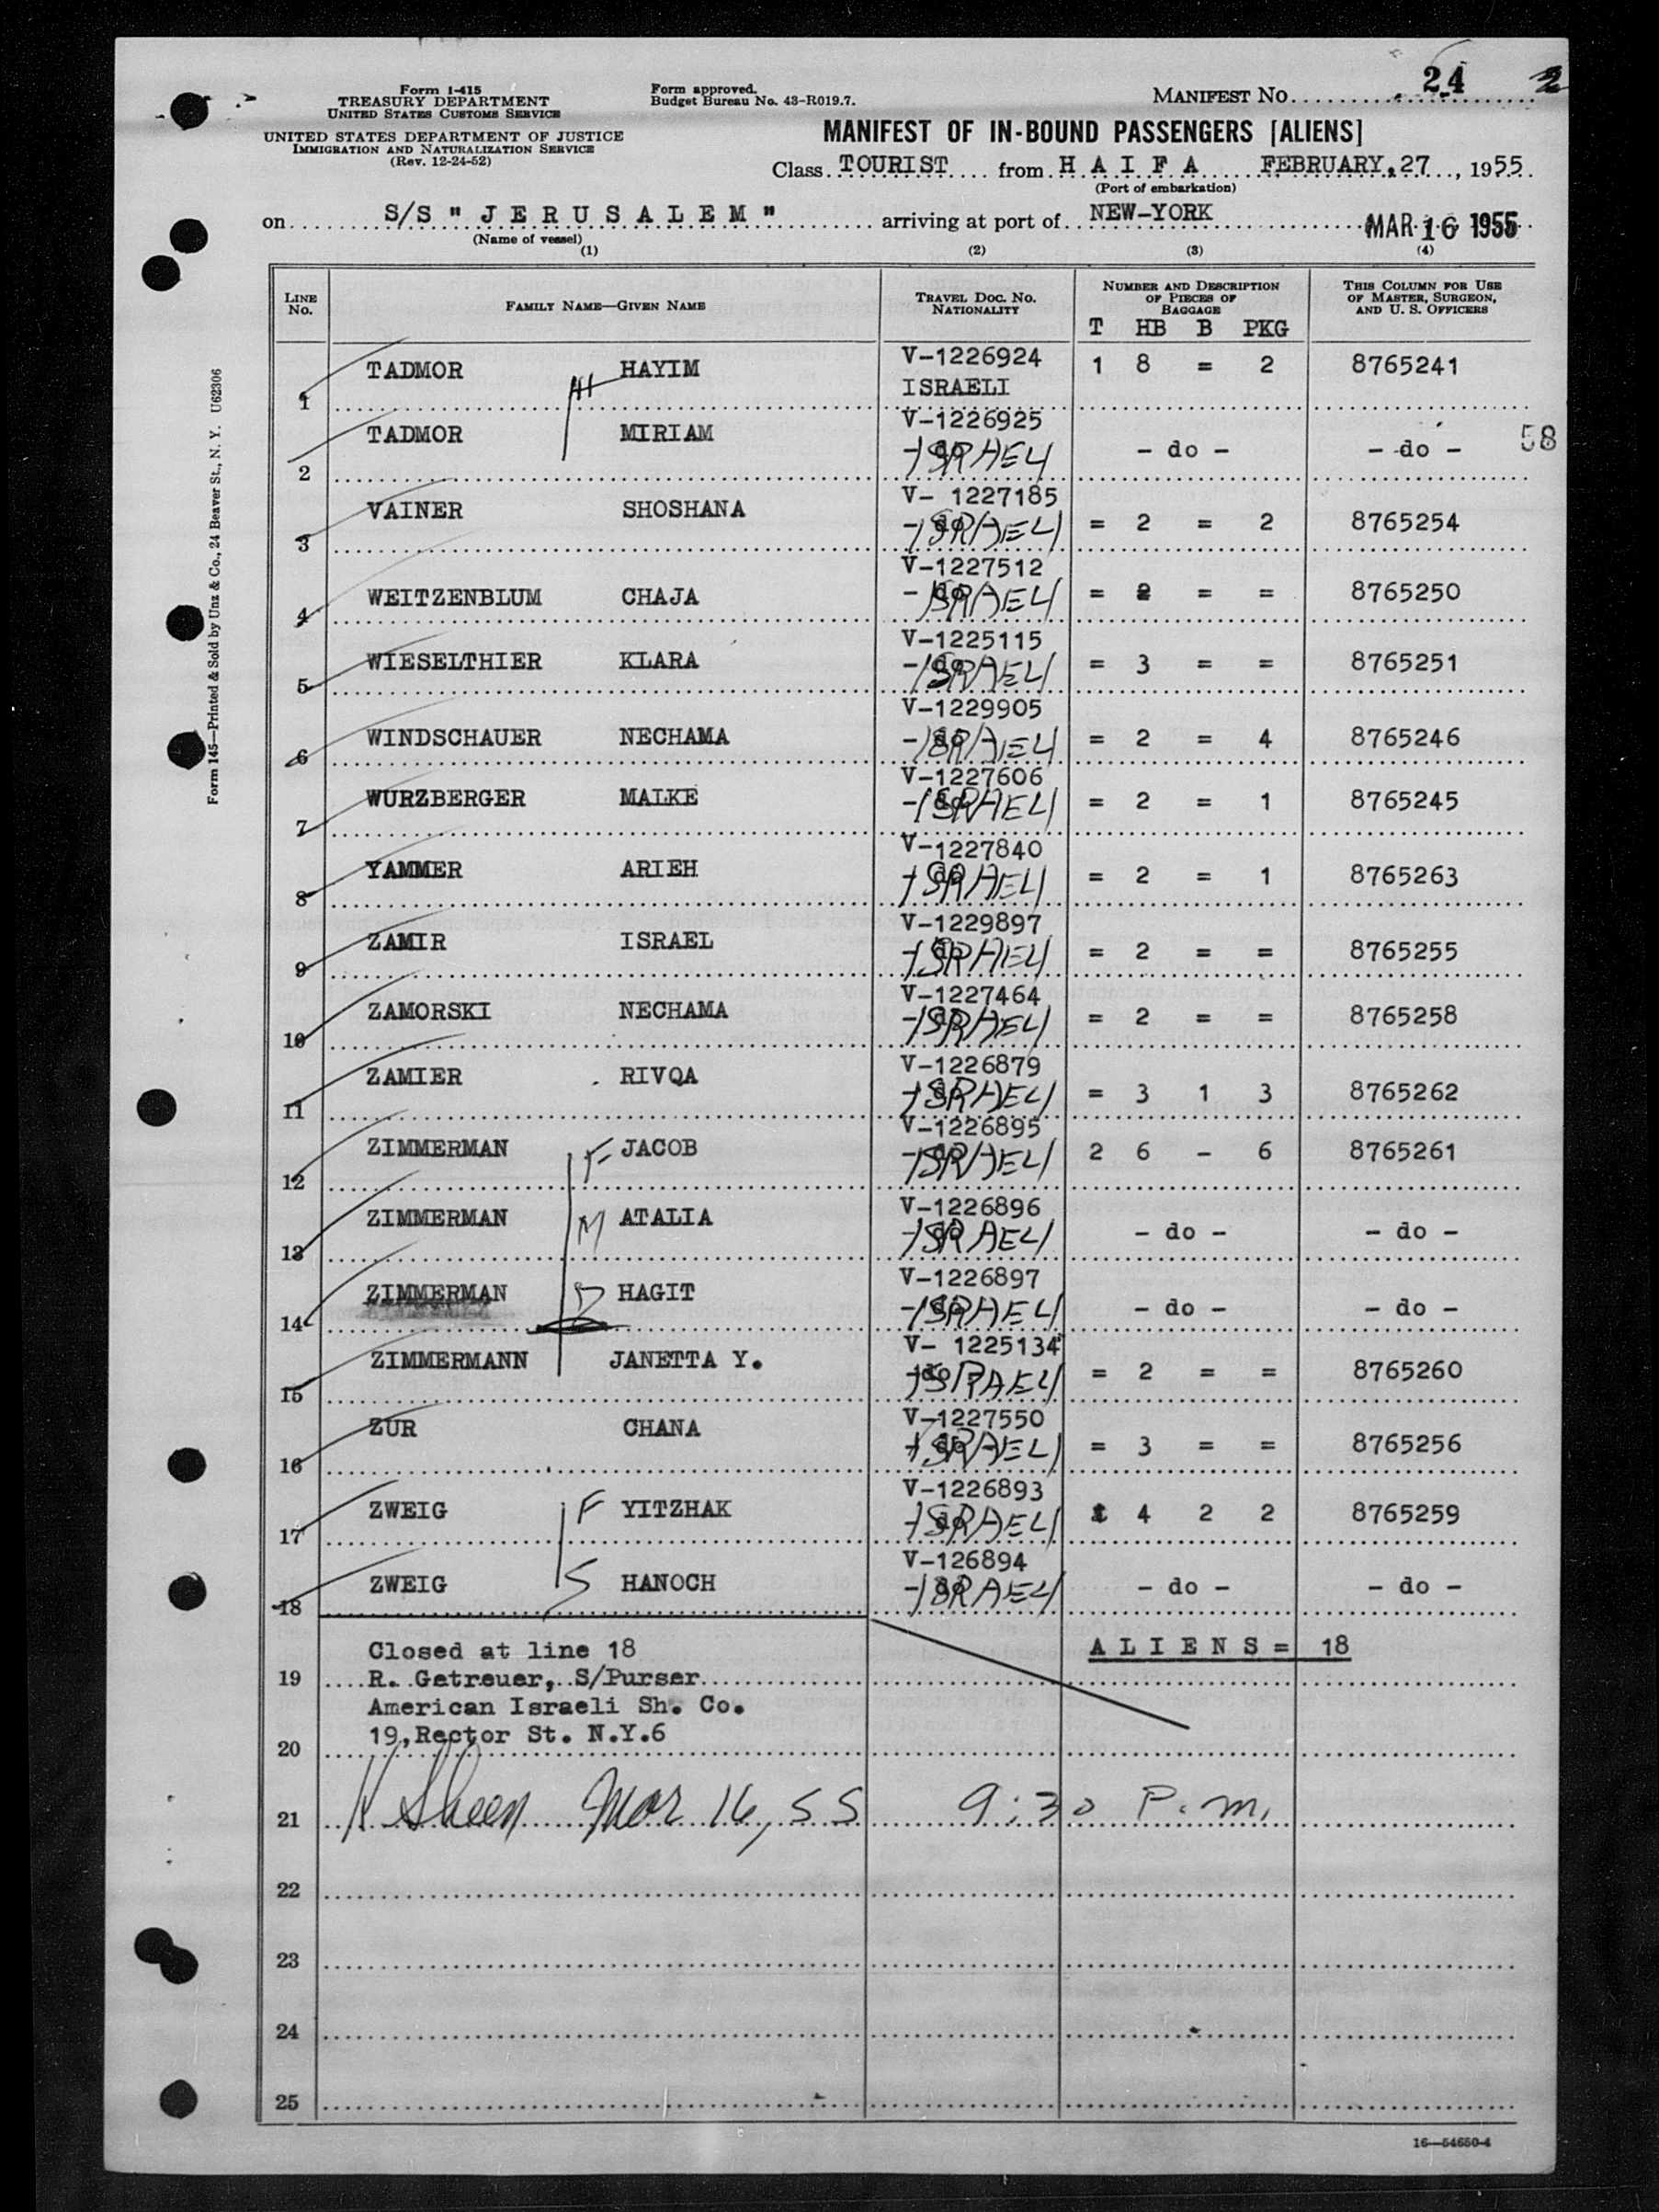 Form I-415
TREASURY DEPARTMENT
UNITED STATES CUSTOMS SERVICE
UNITED STATES DEPARTMENT OF JUSTICE
IMMIGRATION AND NATURALIZATION SERVICE
(Rev. 12-24-52)
Form approved.
Budget Bureau No. 43-R019.7.
MANIFEST NO. 24 2
MANIFEST OF IN-BOUND PASSENGERS [ALIENS]
Class TOURIST from H A I F A FEBRUARY,27, 1955
(Port of embarkation)
on S/S " J E R U S A L E M " arriving at port of NEW-YORK MAR 16 1955
(Name of vessel)
(1) (2) (3) (4)
LINE No. FAMILY NAME—GIVEN NAME TRAVEL DOC. NO. NATIONALITY NUMBER AND DESCRIPTION OF PIECES OF BAGGAGE THIS COLUMN FOR USE OF MASTER, SURGEON, AND U. S. OFFICERS
T HB B PKG
1 TADMOR H HAYIM V-1226924 ISRAELI 1 8 = 2 8765241
2 TADMOR MIRIAM V-1226925 ISRAELI - do - - do - 58
3 VAINER SHOSHANA V- 1227185 ISRAELI = 2 = 2 8765254
4 WEITZENBLUM CHAJA V-1227512 ISRAELI = 2 = = 8765250
5 WIESELTHIER KLARA V-1225115 ISRAELI = 3 = = 8765251
6 WINDSCHAUER NECHAMA V-1229905 ISRAELI = 2 = 4 8765246
7 WURZBERGER MALKE V-1227606 ISRAELI = 2 = 1 8765245
8 YAMMER ARIEH V-1227840 ISRAELI = 2 = 1 8765263
9 ZAMIR ISRAEL V-1229897 ISRAELI = 2 = = 8765255
10 ZAMORSKI NECHAMA V-1227464 ISRAELI = 2 = = 8765258
11 ZAMIER RIVQA V-1226879 ISRAELI = 3 1 3 8765262
12 ZIMMERMAN F JACOB V-1226895 ISRAELI 2 6 - 6 8765261
13 ZIMMERMAN M ATALIA V-1226896 ISRAELI - do - - do -
14 ZIMMERMAN D HAGIT V-1226897 ISRAELI - do - - do -
15 ZIMMERMANN JANETTA Y. V- 1225134 ISRAELI = 2 = = 8765260
16 ZUR CHANA V-1227550 ISRAELI = 3 = = 8765256
17 ZWEIG F YITZHAK V-1226893 ISRAELI 4 2 2 8765259
18 ZWEIG S HANOCH V-126894 ISRAELI - do - - do -
Closed at line 18 A L I E N S = 18
19 R. Getreuer, S/Purser
American Israeli Sh. Co.
20 19,Rector St. N.Y.6
21 Mar 16, 55 9:30 P.m.
22
23
24
25
16—54650-4
Form 145—Printed & Sold by Unz & Co., 24 Beaver St., N. Y. U62306